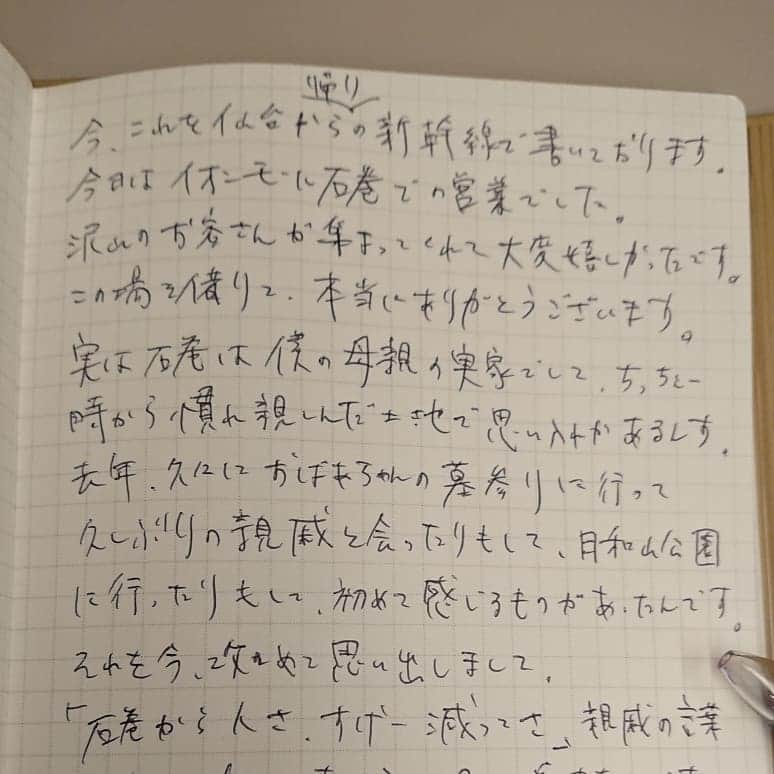 帰り
今、これを仙台からの新幹線で書いております。
今日はイオンモール石巻での営業でした。
沢山のお客さんが集まってくれて大変嬉しかったです。
この場を借りて、本当にありがとうございます。
実は石巻は僕の母親の実家でして、ちっちぇー
時から慣れ親しんだ土地で思い入れがあるんす。
去年、久々におばあちゃんの墓参りに行って
久しぶりの親戚と会ったりもして、日和山公園
に行ったりもして、初めて感じるものがあったんです。
それを今、改めて思い出しまして、
「石巻から人さ、すげー減ってさ」親戚の言葉